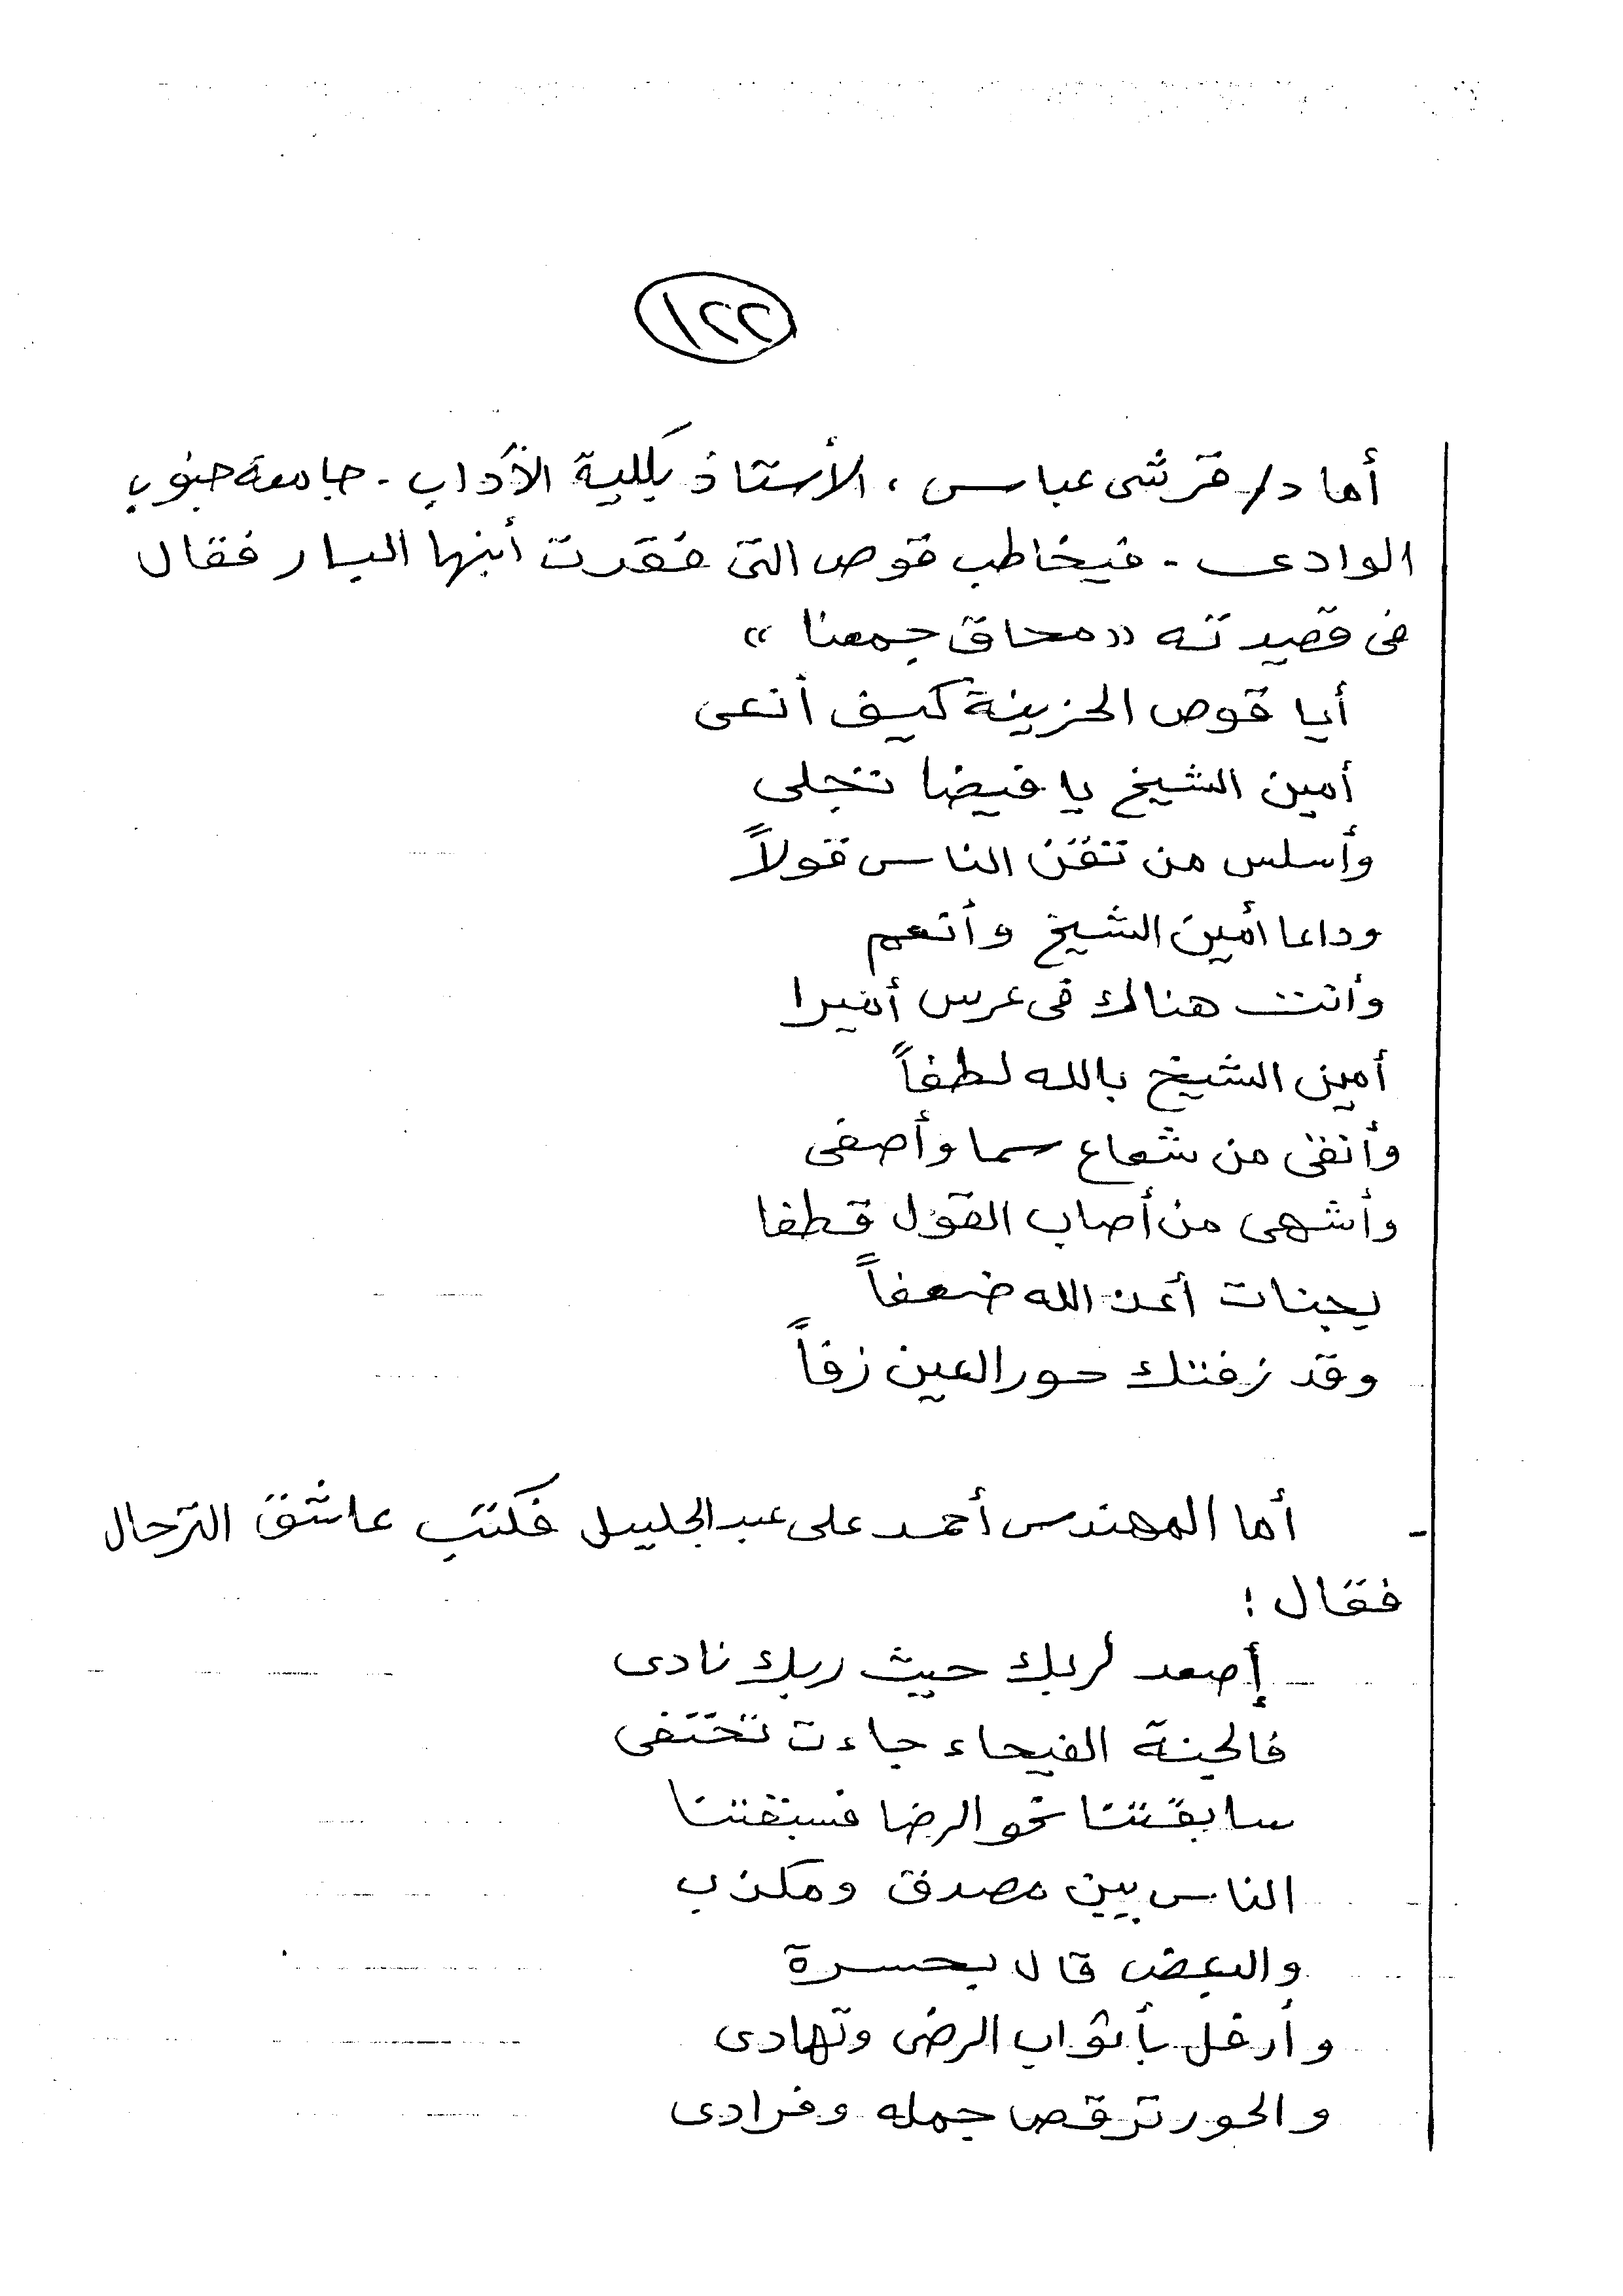 ١٢٢
أما د/ قرشى عباس ، الأستاذ بكلية الآداب - جامعة جنوب
الوادى - فيخاطب قوص التى فقدت أبنها البار فقال
فى قصيدته «محاق جمعنا »
أيا قوص الحزينة كيف أنعى
أمين الشيخ يا فيضا تجلى
وأسلس من تقن الناس قولاً
وداعا أمين الشيخ وأنعم
وأنت هناك فى عرس أميرا
أمين الشيخ بالله لطفاً
وأنقى من شعاع سما وأصفى
وأشهى من أصاب القول قطفا
بجنات أعد الله ضعفاً
وقد زفتك حور العين زفاً
- أما المهندس أحمد على عبد الجليل فكتب عاشق الترحال
فقال :
إصعد لربك حيث ربك نادى
فالجنة الفيحاء جاءت تحتفى
سابقتنا نحو الرضا فسبقتنا
الناس بين مصدق ومكذب
والبعض قال بحسرة
وأرفل بأثواب الرضى وتهادى
والحور ترقص جمله وفرادى